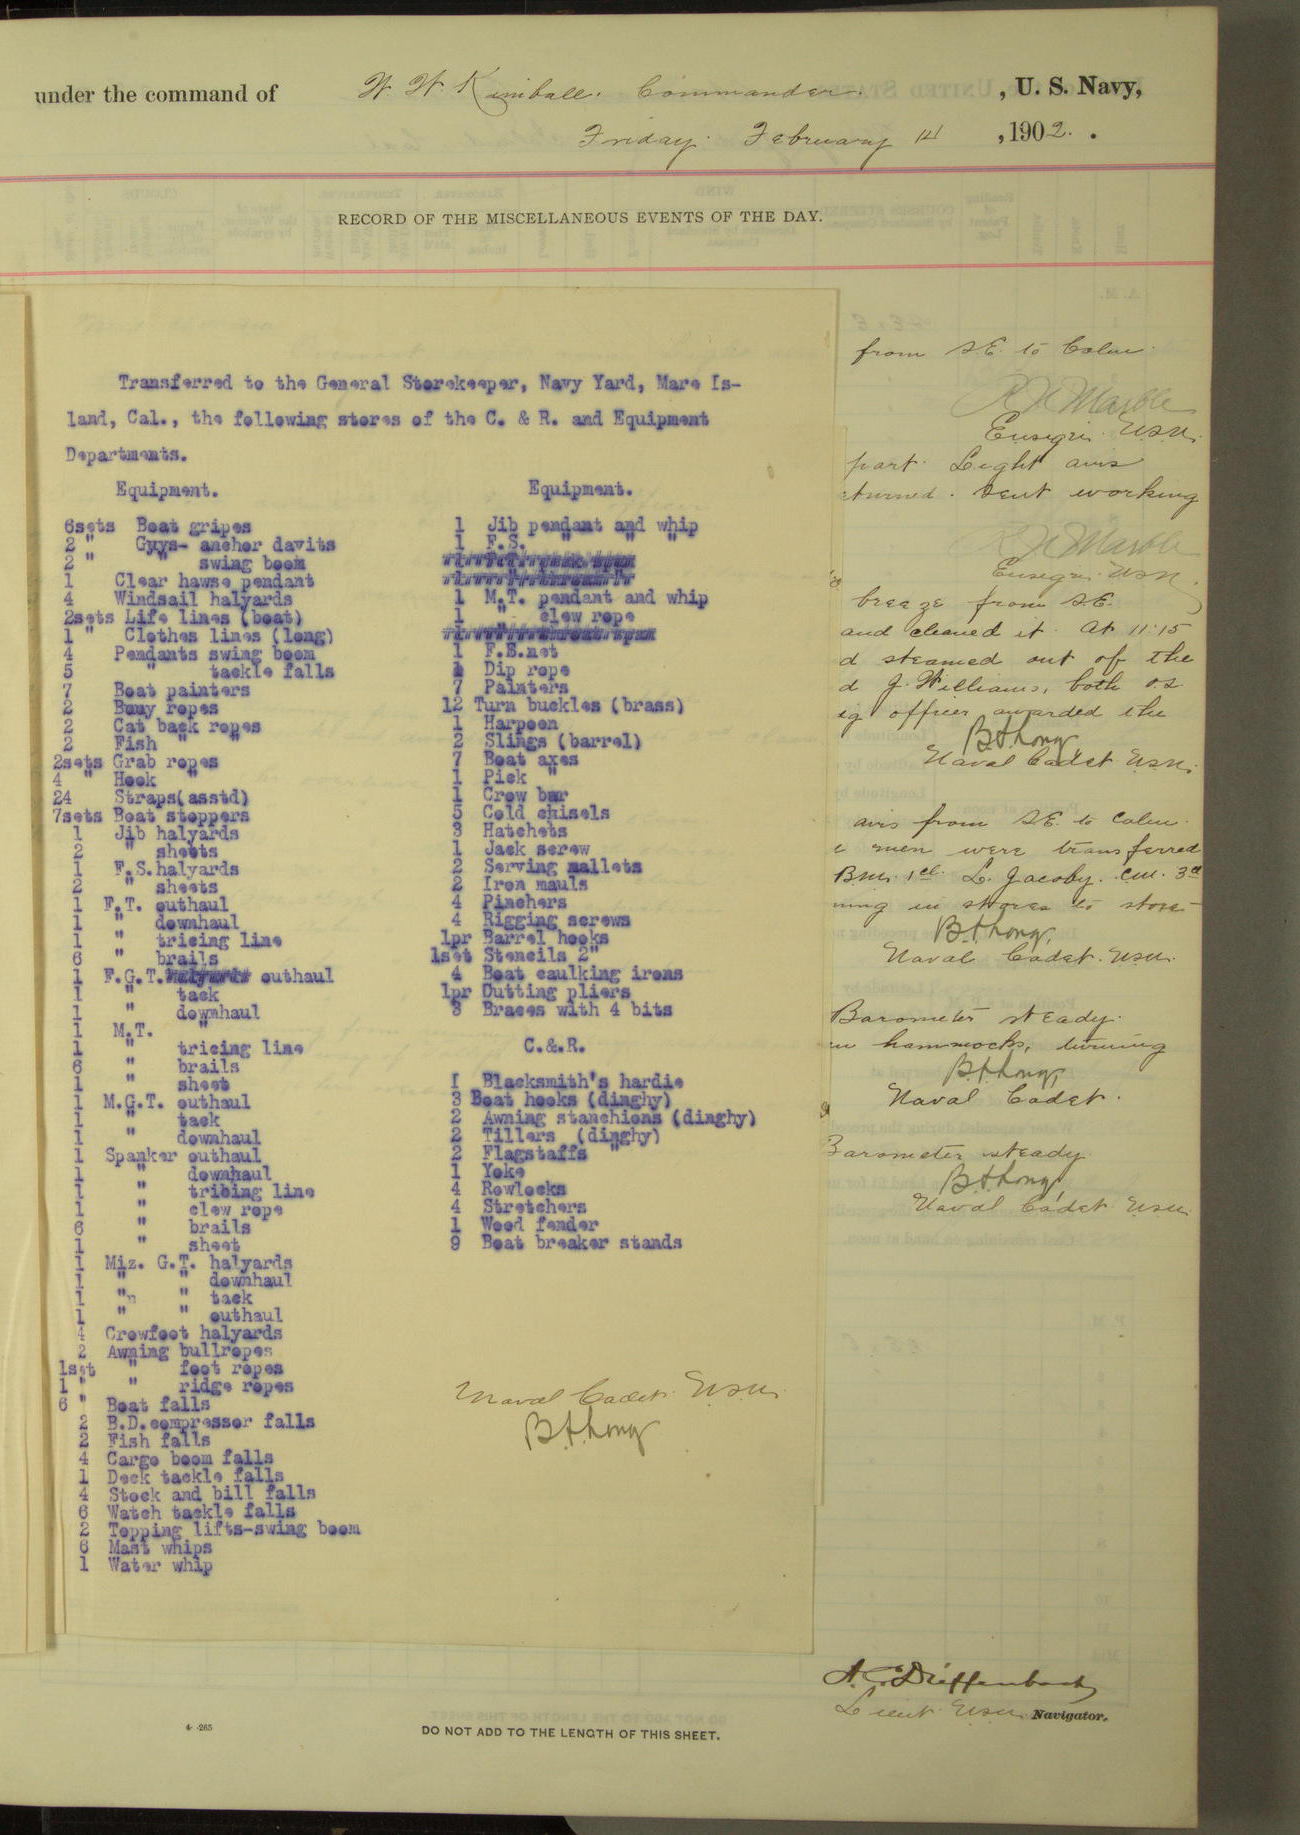 under the command of W. W. Kimball. Commander. , U. S. Navy,
Friday. February 14 , 1902.
RECORD OF THE MISCELLANEOUS EVENTS OF THE DAY.
Transferred to the General Storekeeper, Navy Yard, Mare Is-
land, Cal., the following stores of the C. & R. and Equipment
Departments.
Equipment.
6sets Boat gripes
2 " Guys- anchor davits
2 " " swing boom
1 Clear hawse pendant
4 Windsail halyards
2sets Life lines (boat)
1 " Clothes lines (long)
4 Pendants swing boom
5 " tackle falls
7 Boat painters
2 Buoy ropes
2 Cat back ropes
2 Fish " "
2sets Grab ropes
4 " Hook "
24 Straps(asstd)
7sets Boat stoppers
1 Jib halyards
2 " sheets
1 F.S.halyards
2 " sheets
1 F.T. outhaul
1 " downhaul
1 " tricing line
6 " brails
1 F.G.T. outhaul
1 " tack
1 " downhaul
1 M.T. "
1 " tricing line
6 " brails
1 " sheet
1 M.G.T. outhaul
1 " tack
1 " downhaul
1 Spanker outhaul
1 " downhaul
1 " tricing line
1 " clew rope
6 " brails
1 " sheet
1 Miz. G.T. halyards
1 " " downhaul
1 " " tack
1 " " outhaul
4 Crowfoot halyards
2 Awning bullropes
1set " foot ropes
1 " " ridge ropes
6 " Boat falls
2 B.D.compressor falls
2 Fish falls
4 Cargo boom falls
1 Deck tackle falls
4 Stock and bill falls
6 Watch tackle falls
2 Topping lifts-swing boom
6 Mast whips
1 Water whip
Equipment.
1 Jib pendant and whip
1 F.S. " " "
1 M.T. pendant and whip
1 " clew rope
1 F.S.net
1 Dip rope
7 Painters
12 Turn buckles (brass)
1 Harpoon
2 Slings (barrel)
7 Boat axes
1 Pick "
1 Crow bar
5 Cold chisels
3 Hatchets
1 Jack screw
2 Serving mallets
2 Iron mauls
4 Pinchers
4 Rigging screws
1pr Barrel hooks
1set Stencils 2"
4 Boat caulking irons
1pr Cutting pliers
3 Braces with 4 bits
C.&.R.
I Blacksmith's hardie
3 Boat hooks (dinghy)
2 Awning stanchions (dinghy)
2 Tillers (dinghy)
2 Flagstaffs "
1 Yoke
4 Rowlocks
4 Stretchers
1 Wood fender
9 Boat breaker stands
Naval Cadet. U.S.N.
B.H. Long
from S.E. to Calm.
Marble
Ensign. U.S.N.
part. Light airs
turned. Sent working
Marble
Ensign. U.S.N.
breeze from S.E.
and cleaned it. At 11:15
d steamed out of the
d J. Williams, both o.s.
ig officer awarded the
B.H. Long
Naval Cadet. U.S.N.
airs from S.E. to calm.
men were transferred
L. Jacoby. Cm. 3cl
ning in stores to store-
B.H. Long,
Naval Cadet. U.S.N.
Barometer steady.
hammocks, turning
B.H. Long,
Naval Cadet.
Barometer steady.
B.H. Long
Naval Cadet U.S.N.
A. C. Dieffenbach
Lieut. U.S.N. Navigator.
4-265
DO NOT ADD TO THE LENGTH OF THIS SHEET.